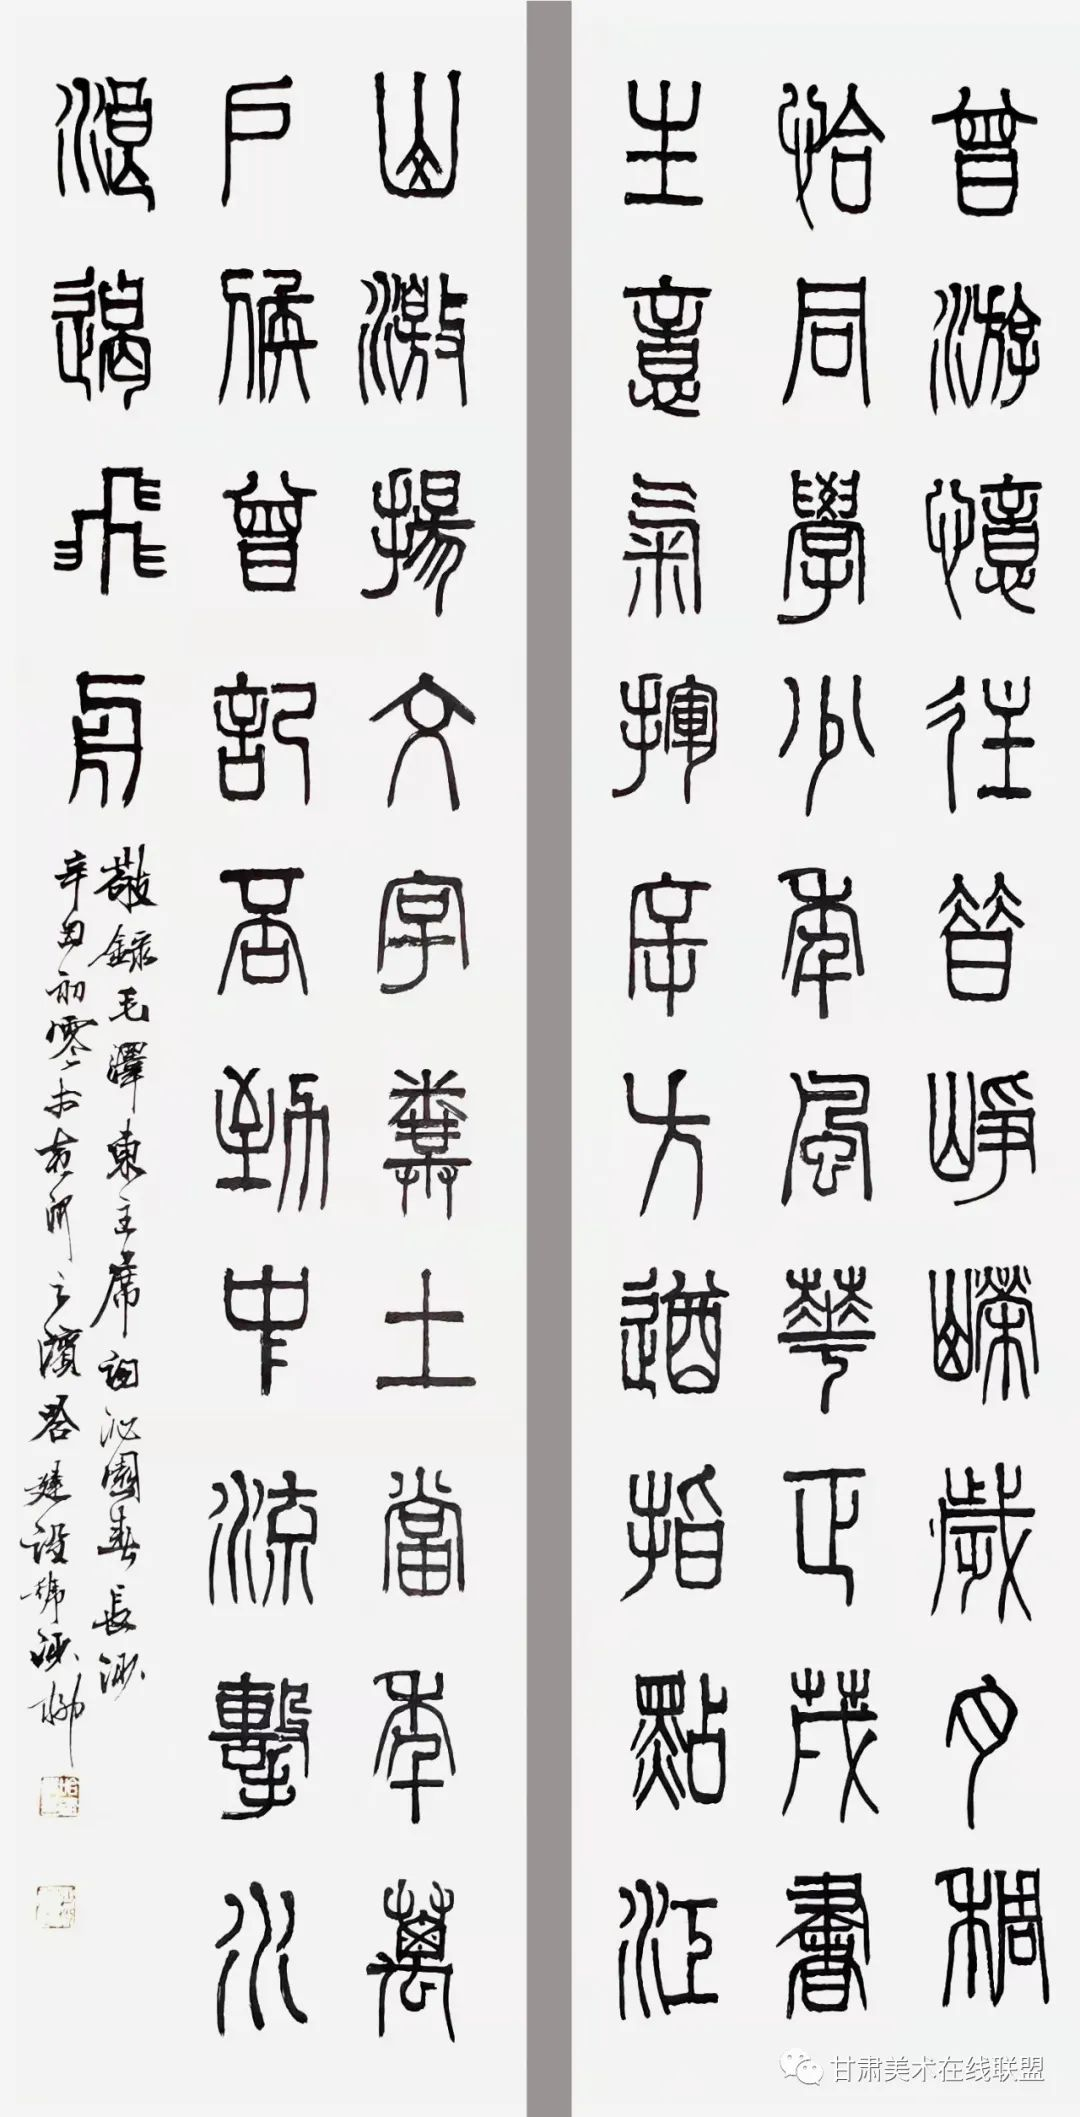 曾游憶往昔崢嶸歲月稠
恰同學少年風華正茂書
生意氣揮斥方遒指點江
山激揚文字糞土當年萬
戶侯曾記否到中流擊水
浪遏飛舟
敬錄毛澤東主席詞沁園春長沙
辛丑初之濱建設
甘肃美术在线联盟